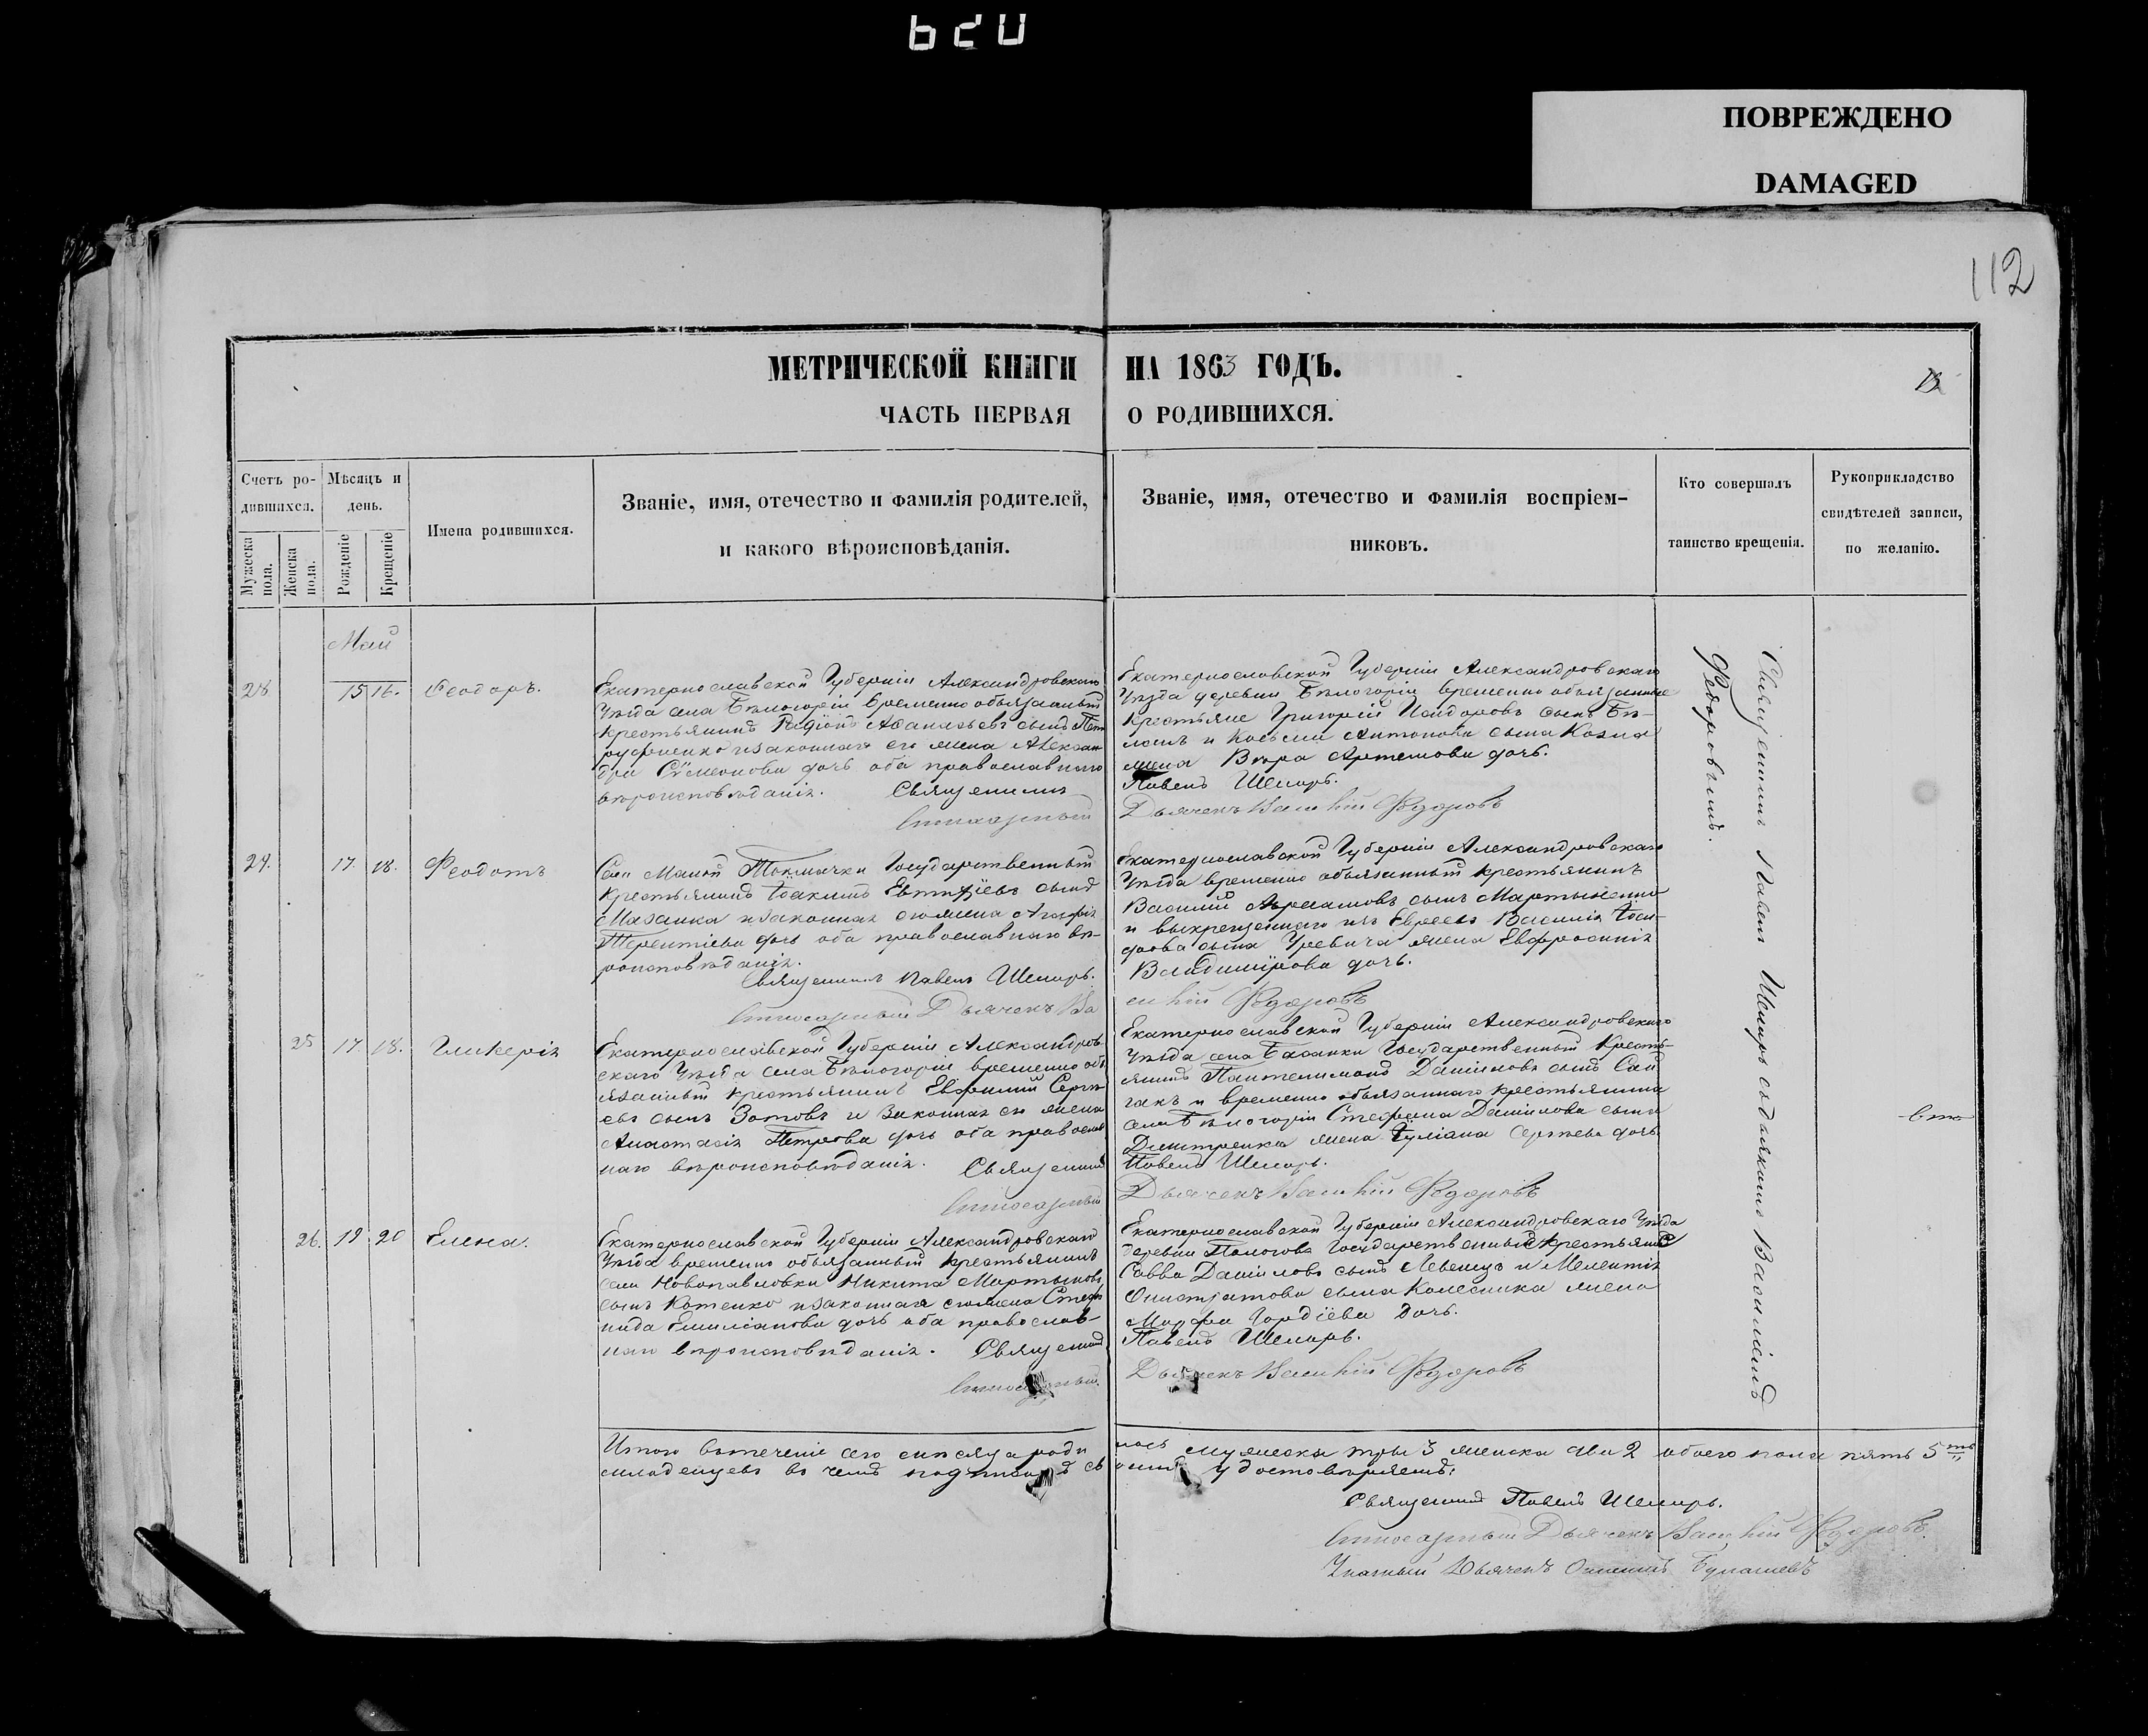 ПОВРЕЖДЕНО
DAMAGED
112
МЕТРИЧЕСКОЙ КНИГИ НА 1863 ГОДЪ.
ЧАСТЬ ПЕРВАЯ О РОДИВШИХСЯ.
Счетъ родившихся.
Мужеска пола.
Женска пола.
Мѣсяцъ и день.
Рожденіе
Крещеніе
Имена родившихся.
Званіе, имя, отечество и фамилія родителей,
и какого вѣроисповѣданія.
Званіе, имя, отечество и фамилія воспріем-
никовъ.
Кто совершалъ
таинство крещенія.
Рукоприкладство
свидѣтелей записи,
по желанію.
Май
15 16. Феодоръ.
Екатеринославской Губерніи Александровскаго
Уѣзда села Бѣлогорія временно обязанный
крестьянинъ Родіонъ Аѳанасьевъ сынъ
и законная его жена Алексан
дра Сѵмеонова дочь оба православнаго
вѣроисповѣданія. Священникъ
Екатеринославской Губерніи Александровскаго
Уѣзда деревни Бѣлогорія временно обязанные
крестьяне Григорій Исидоровъ сынъ
и Косьмы Антонова сына
жена Вѣра Артемова дочь.
Павелъ Шемаръ.
Дьячекъ Федоровъ
Священникъ Павелъ Шемаръ съ дьячкомъ Василіемъ
Федоровымъ.
24. 17. 18. Феодотъ
Села Малой Токмачки Государственный
крестьянинъ Іоакимъ Евтихіевъ сынъ
Мазанка и законная его жена
Терентіева дочь оба православнаго вѣ-
роисповѣданія.
Священникъ Павелъ Шемаръ.
Дьячекъ Ва
Екатеринославской Губерніи Александровскаго
Уѣзда временно обязанный крестьянинъ
Василій сынъ Мартыненко
и выкрещеннаго изъ Евреевъ Василія
сына жена Евфросинія
Владимірова дочь.
Федоровъ
25 17. 18. Гликерія
Екатеринославской Губерніи Александров
скаго Уѣзда села Бѣлогорія временно об
язанный крестьянинъ Евфимій Серге
евъ сынъ Зотовъ и законная его жена
Анастасія Петрова дочь оба православ
наго вѣроисповѣданія. Священникъ
Екатеринославской Губерніи Александровскаго
Уѣзда села Басанки Государственный кресть-
янинъ Пантелеимонъ Даніиловъ сынъ Сай
гакъ и временно обязаннаго крестьянина
села Бѣлогорія Стефана Даніилова сына
Дмитренка жена Іуліана Сергѣева дочь
Павелъ Шемаръ.
Дьячекъ Федоровъ
26. 19 20 Елена.
Екатеринославской Губерніи Александровскаго
Уѣзда временно обязанный крестьянинъ
села Новопавловки Никита Мартыновъ
сынъ Котенко и законная его жена Стефа
нида Емиліанова дочь оба православ-
наго вѣроисповѣданія. Священникъ
Екатеринославской Губерніи Александровскаго Уѣзда
деревни Пологовъ Государственный крестьянинъ
Савва Даніиловъ сынъ и Мелентія
сына Колесника жена
Марфа Гордіева дочь.
Павелъ Шемаръ.
Дьячекъ Федоровъ
Итого втеченіе сего мѣсяца роди
лось мужеска три 3 женска два 2 обоего пола пять 5
младенцевъ въ чемъ удостовѣряемъ:
Священникъ Павелъ Шемаръ.
Дьячекъ Федоровъ.
Дьячекъ